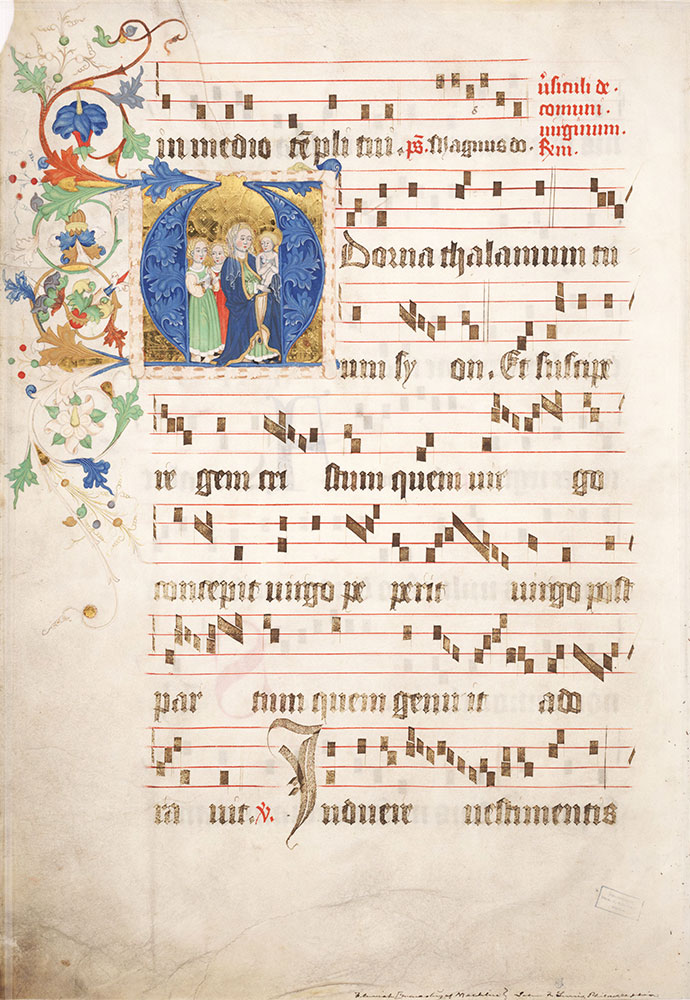 in medio te̅pli tui. ps̅. Magnus do.
v̅siculi de
comuni
uirginum.
Rm̅.
Adorna thalamum tu
um sy on. Et suscipe
re gem cri stum quem uir go
concepit uirgo pe perit uirgo post
par tum quem genuit ado
ra uit. V̅. Induere uestimentis